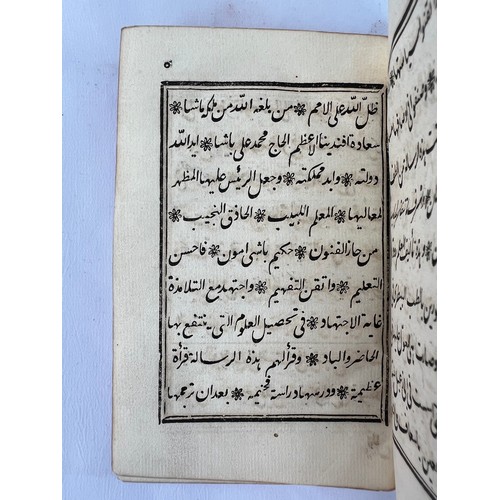 ٥
ظل الله على الامم ❋ من بلغه الله من ملكه ماشا ❋
سعادة افندينا الاعظم الحاج محمد على باشا ❋ ايد الله
دولته ❋ وابد مملكته ❋ وجعل الرئيس عليها المظهر
لمعاليها ❋ المعلم اللبيب ❋ الحاذق النجيب ❋
من حاز الفنون ❋ حكيم باشى امون ❋ فاحسن
التعليم ❋ واتقن التفهيم ❋ واجتهد مع التلامذة
غاية الاجتهاد ❋ فى تحصيل العلوم التى ينتفع بها
الحاضر والباد ❋ وقرألهم هذه الرسالة قرأة
عظيمة ❋ ودرسها دراسة فخيمة ❋ بعد ان ترجمها